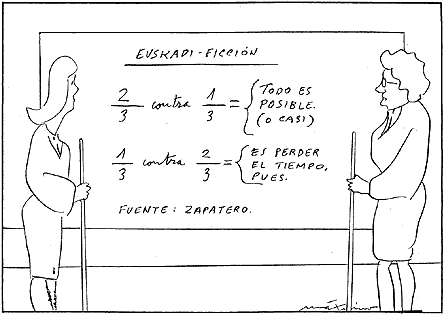 EUSKADI-FICCIÓN
2/3 contra 1/3 = { TODO ES
POSIBLE.
(O CASI)
1/3 contra 2/3 = { ES PERDER
EL TIEMPO,
PUES.
FUENTE: ZAPATERO.
máximo